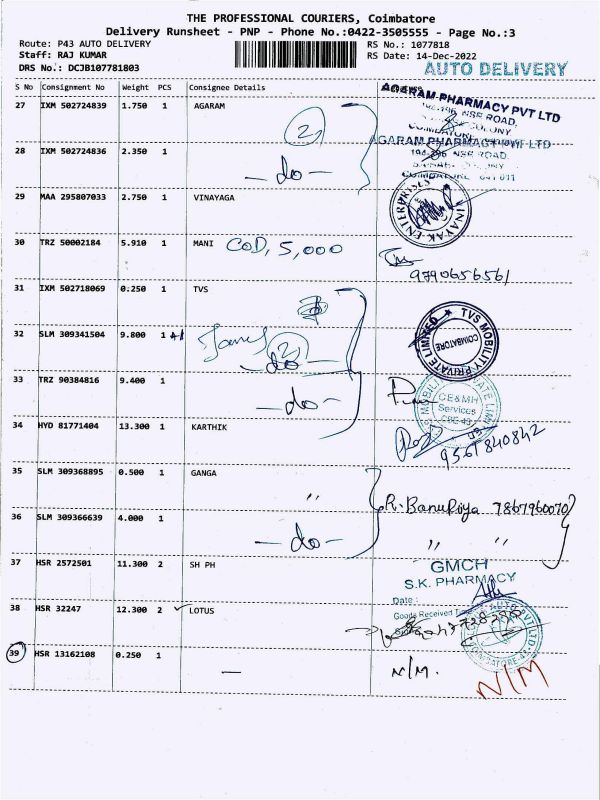 THE PROFESSIONAL COURIERS, Coimbatore
Delivery Runsheet - PNP - Phone No.:0422-3505555 - Page No.:3
Route: P43 AUTO DELIVERY
RS No.: 1077818
Staff: RAJ KUMAR
RS Date: 14-Dec-2022
DRS No.: DCJB107781803
AUTO DELIVERY
S No Consignment No Weight PCS Consignee Details
27 IXM 502724839 1.750 1 AGARAM
AGARAM PHARMACY PVT LTD
194-196, NSR ROAD,
COIMBATORE
2
28 IXM 502724836 2.350 1
AGARAM PHARMACY PVT LTD
194-196 NSR ROAD,
COIMBATORE 641 011
- do -
29 MAA 295807033 2.750 1 VINAYAGA
VINAYAK ENTERPRISES
30 TRZ 50002184 5.910 1 MANI COD, 5,000
9790656561
31 IXM 502718069 0.250 1 TVS
TVS MOBILITY PRIVATE LIMITED
COIMBATORE
32 SLM 309341504 9.800 1 +1
2
- do -
33 TRZ 90384816 9.400 1
- do -
CE&MH
Services
CBE-43
34 HYD 81771404 13.300 1 KARTHIK
9567840842
35 SLM 309368895 0.500 1 GANGA
〃 R. BanuPriya 7867960070
36 SLM 309366639 4.000 1
- do - 〃 〃
37 HSR 2572501 11.300 2 SH PH
GMCH
S.K. PHARMACY
Date :
Goods Received
38 HSR 32247 12.300 2 ✓ LOTUS
COIMBATORE-43
39 HSR 13162108 0.250 1
— N/M. N/M